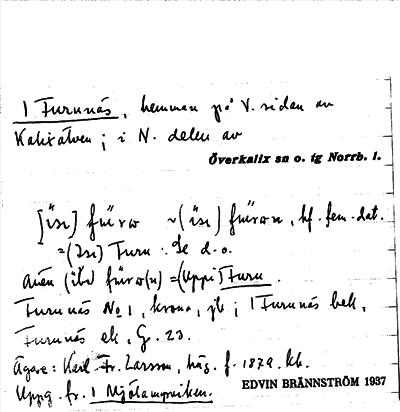 1 Furunäs, hemman på V. sidan av
Kalixälven; i N. delen av
Överkalix sn o. tg Norrb. l.
[ísı] fürω ~ (ísı) fürωn, bf. fem. dat.
=(Isı) Furu. Se d.o.
Även fürω(n) =(Uppi) Furu.
Furunäs No 1, krono, jb; 1 Furunäs bek,
Furunäs ek, G. 23.
Ägare: Karl Fr. Larsson, häg. f. 1879. kk.
Uppg. fr. 1 Mjölampviken.
EDVIN BRÄNNSTRÖM 1937